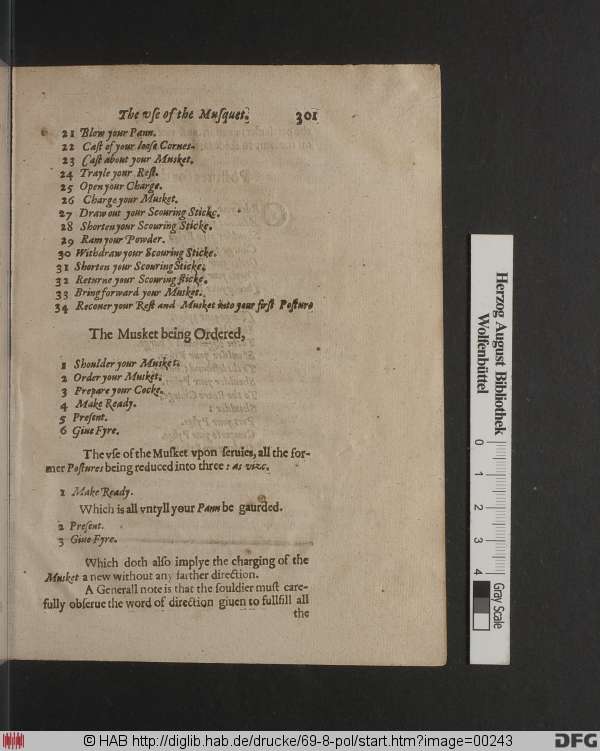 The vſe of the Muſquet. 301
21 Blow your Pann.
22 Caſt of your looſe Cornes.
23 Caſt about your Musket.
24 Trayle your Reſt.
25 Open your Charge.
26 Charge your Musket.
27 Draw out your Scouring Sticke.
28 Shorten your Scouring Sticke.
29 Ram your Powder.
30 Withdraw your Scouring Sticke.
31 Shorten your Scouring Sticke.
32 Returne your Scouring ſticke.
33 Bring forward your Musket.
34 Recouer your Reſt and Musket into your firſt Poſture
The Musket being Ordered,
1 Shoulder your Musket.
2 Order your Musket.
3 Prepare your Cocke.
4 Make Ready.
5 Preſent.
6 Giue Fyre.
The vſe of the Muſket vpon ſeruies, all the for-
mer Poſtures being reduced into three: as vizc.
1 Make Ready.
Which is all vntyll your Pann be gaurded.
2 Preſent.
3 Giue Fyre.
Which doth alſo implye the charging of the
Musket a new without any farther direction.
A Generall note is that the ſouldier muſt care-
fully obſerue the word of direction giuen to fullfill all
the
Herzog August Bibliothek
Wolfenbüttel
0 1 2 3 4
Gray Scale
© HAB http://diglib.hab.de/drucke/69-8-pol/start.htm?image=00243
DFG